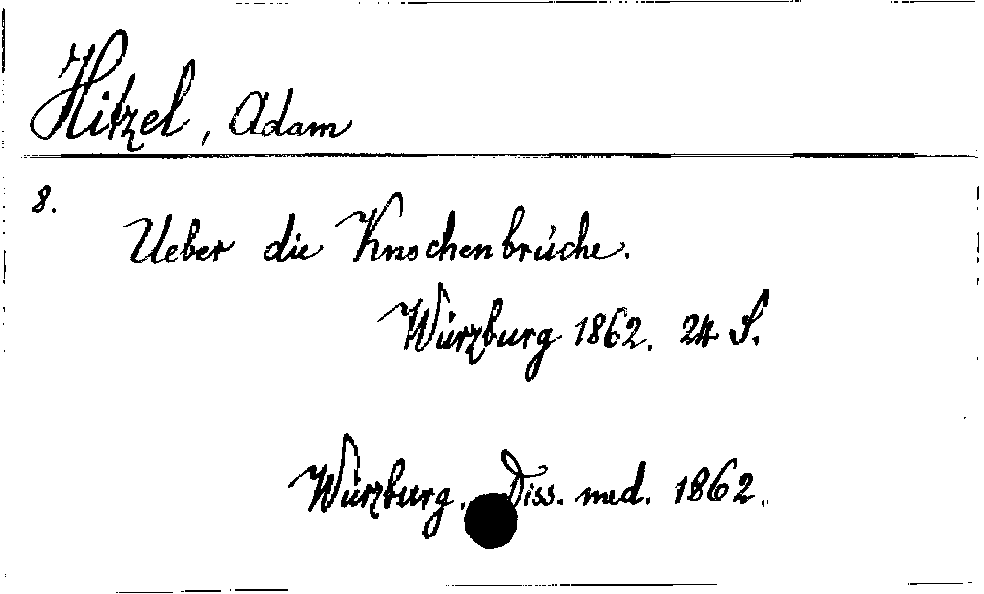 Hitzel, Adam
8.
Ueber die Knochenbrüche.
Würzburg 1862. 24 S.
Würzburg. Diss. med. 1862.